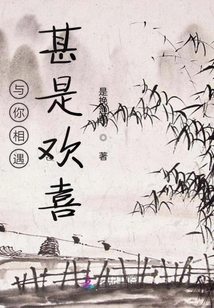 与你相遇
甚是欢喜
是挽
著